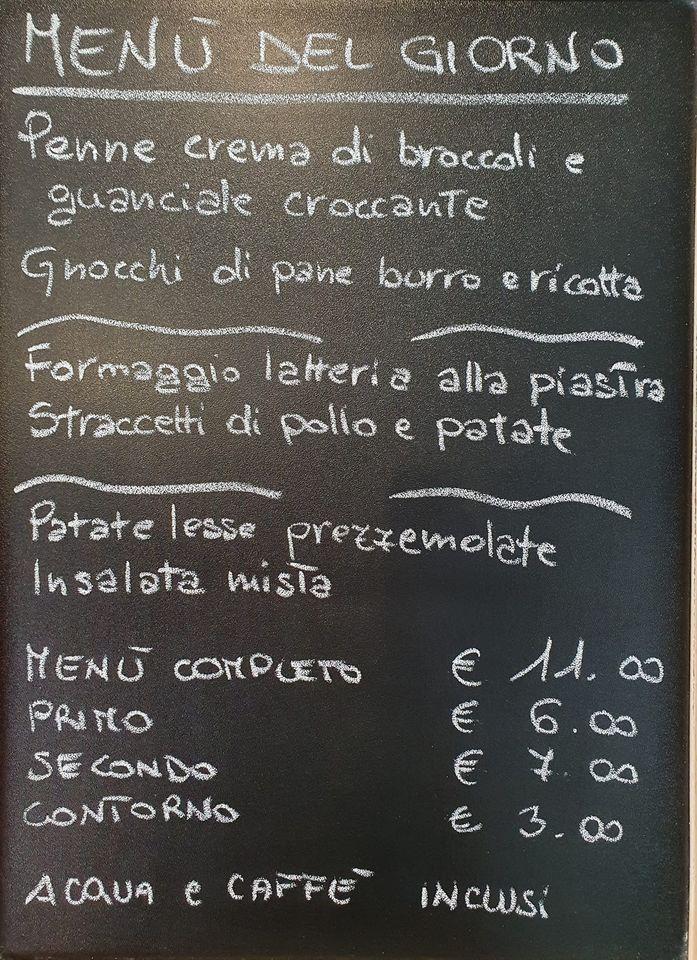 MENÙ DEL GIORNO
Penne crema di broccoli e
guanciale croccante
Gnocchi di pane burro e ricotta
Formaggio latteria alla piastra
Straccetti di pollo e patate
Patate lesse prezzemolate
Insalata mista
MENÙ COMPLETO € 11.00
PRIMO € 6.00
SECONDO € 7.00
CONTORNO € 3.00
ACQUA e CAFFE' INCLUSI